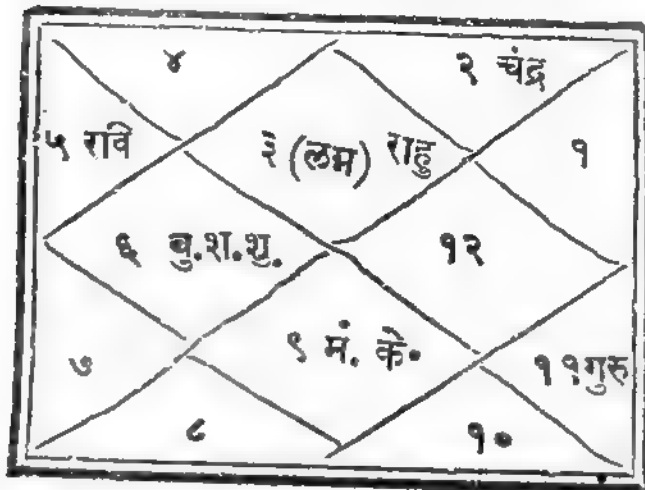 ४ २ चंद्र
५ रवि ३ (लग्न) राहु १
६ बु.श.शु. १२
९ मं. के.
७ ११गुरु
८ १०